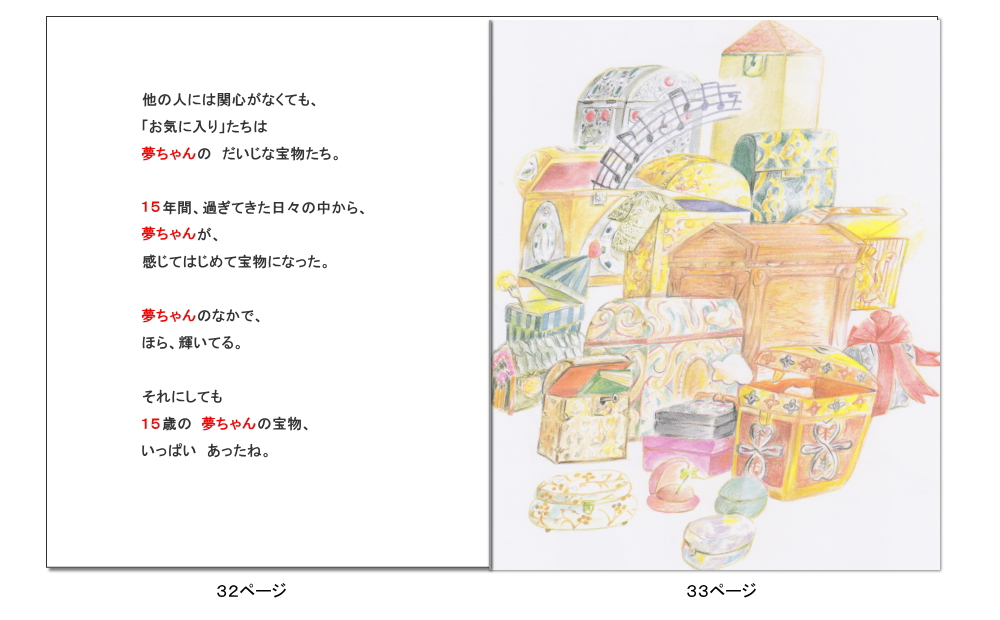 他の人には関心がなくても、
「お気に入り」たちは
夢ちゃんの　だいじな宝物たち。
15年間、過ぎてきた日々の中から、
夢ちゃんが、
感じてはじめて宝物になった。
夢ちゃんのなかで、
ほら、輝いてる。
それにしても
15歳の　夢ちゃんの宝物、
いっぱい　あったね。
32ページ
33ページ